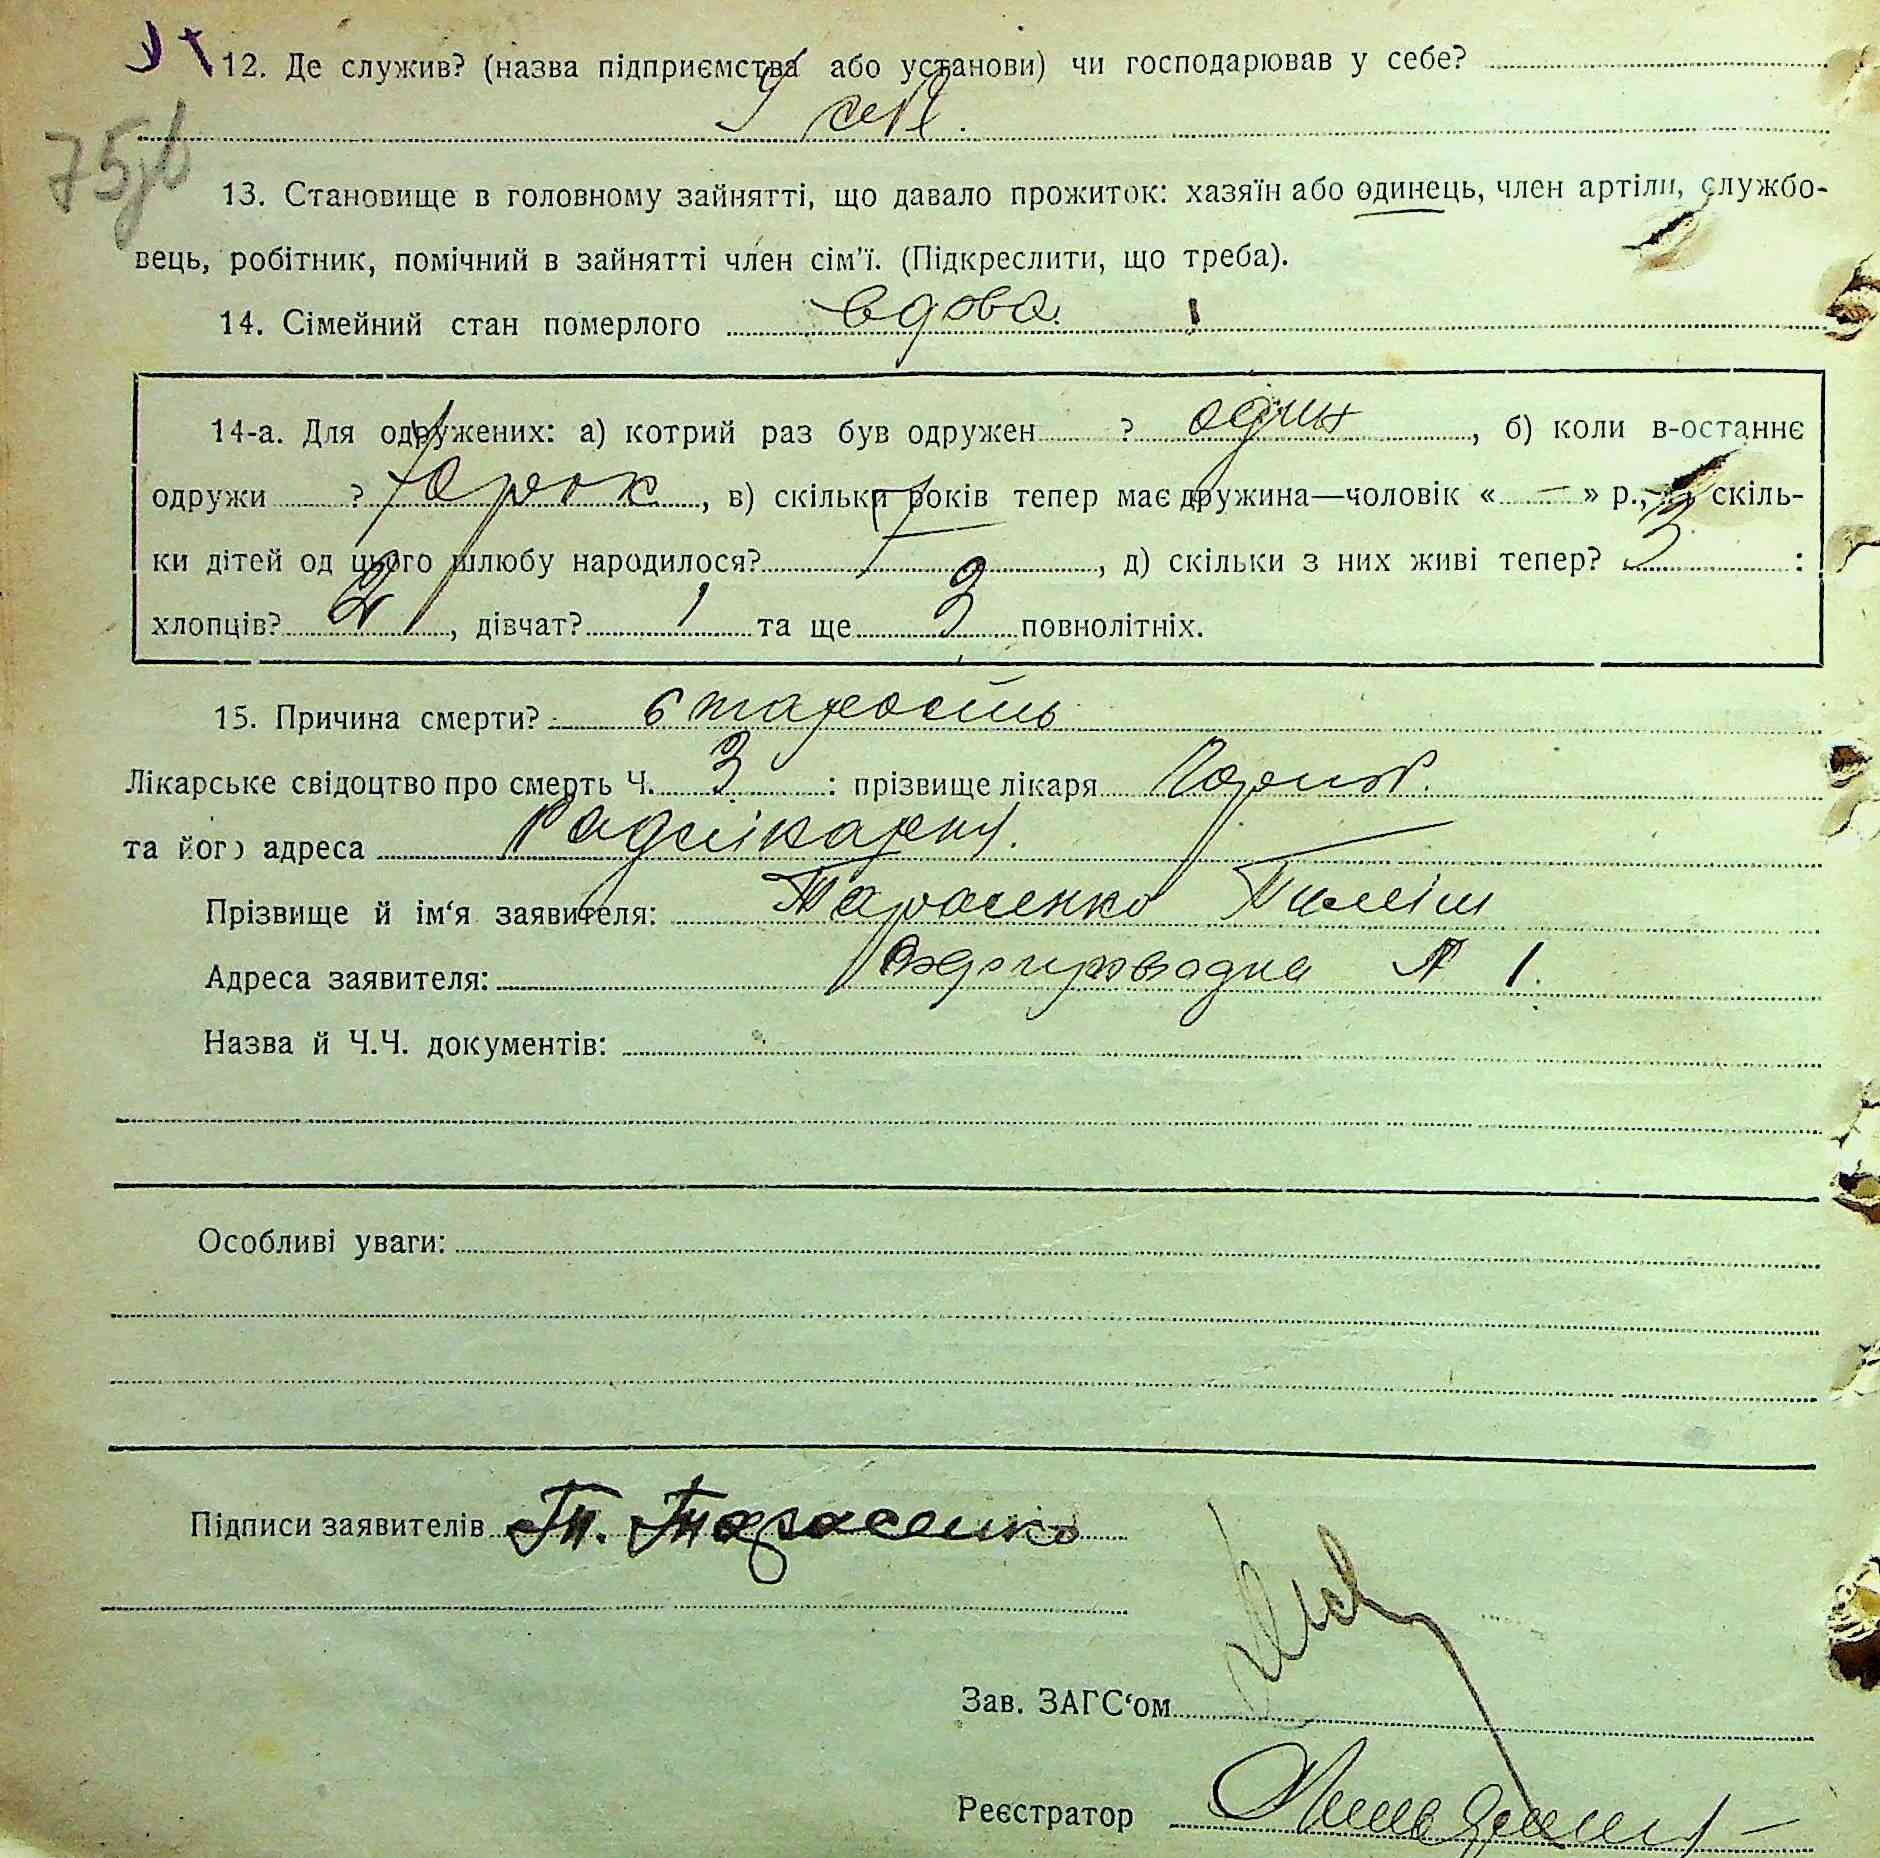 12. Де служив? (назва підприємства або установи) чи господарював у себе?
У себе.
75
13. Становище в головному зайнятті, що давало прожиток: хазяїн або одинець, член артіли, службо-
вець, робітник, помічний в зайнятті член сім'ї. (Підкреслити, що треба).
14. Сімейний стан померлого вдова.
14-а. Для одружених: а) котрий раз був одружен ? один, б) коли в-останнє
одружи ? рок, в) скільки років тепер має дружина—чоловік « — » р., скіль-
ки дітей од цього шлюбу народилося? 7, д) скільки з них живі тепер? 3 :
хлопців? 2, дівчат? 1 та ще 3 повнолітніх.
15. Причина смерти? старость
Лікарське свідоцтво про смерть Ч. 3 : прізвище лікаря
та його адреса Радлікарня.
Прізвище й ім'я заявителя: Тарасенко
Адреса заявителя: № 1.
Назва й Ч.Ч. документів:
Особливі уваги:
Підписи заявителів Т. Тарасенко
Зав. ЗАГС'ом
Реєстратор